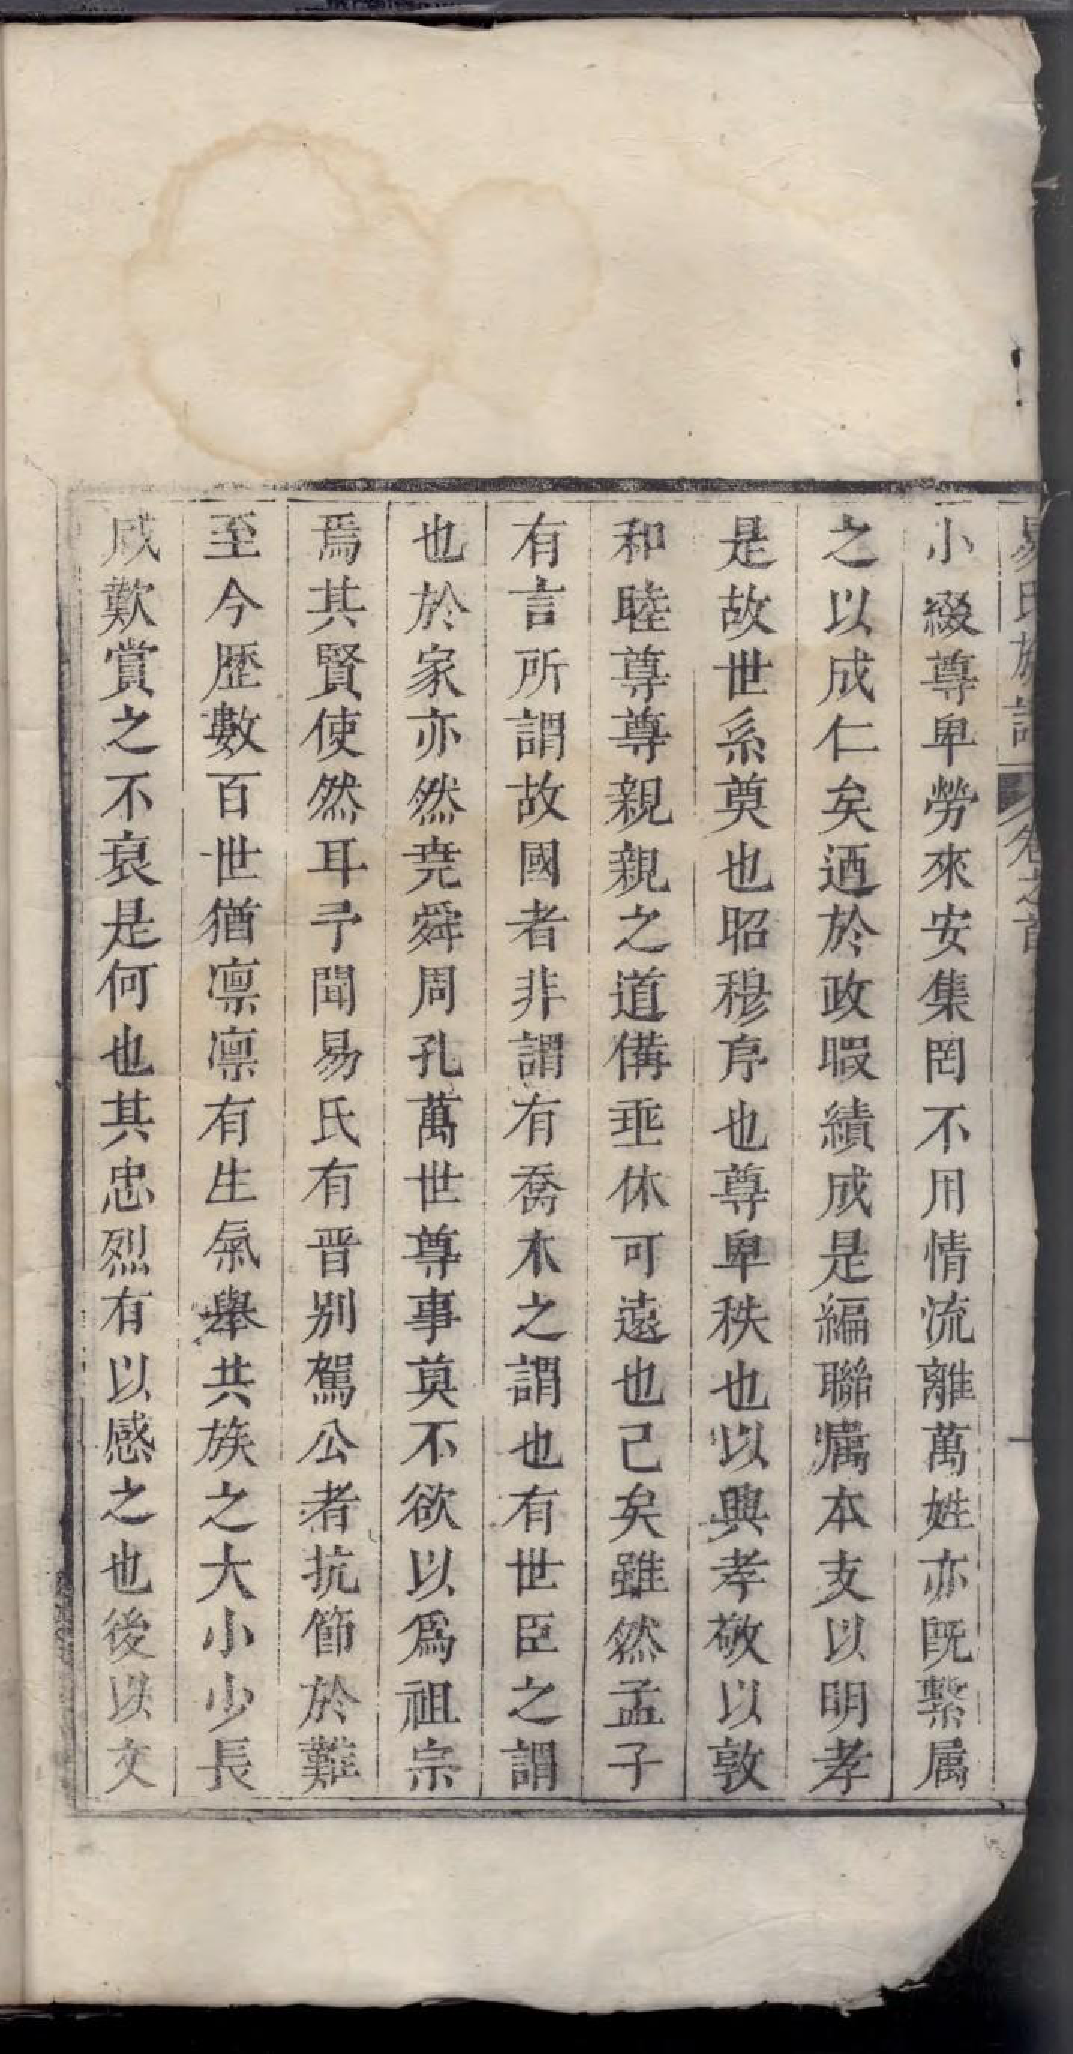 易氏族譜 卷之首
小綴尊卑勞來安集罔不用情流離萬姓亦既繫属
之以成仁矣迺於政暇績成是編聯属本支以明孝
是故世系奠也昭穆序也尊卑秩也以興孝敬以敦
和睦尊尊親親之道備垂休可遠也已矣雖然孟子
有言所謂故國者非謂有喬木之謂也有世臣之謂
也於家亦然尭舜周孔萬世尊事莫不欲以爲祖宗
焉其賢使然耳予聞易氏有晋别駕公者抗節於難
至今歴數百世猶凛凛有生氣舉共族之大小少長
咸歎賞之不衰是何也其忠烈有以感之也後以文